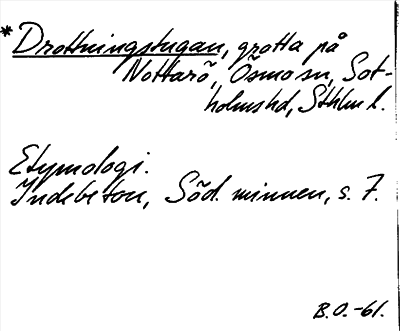 *Drottningstugan, grotta på
Nottarö, Ösmo sn, Sot-
holms hd, Sthlm l.
Etymologi.
Indebetou, Söd. minnen, s. 7.
B.O.-61.